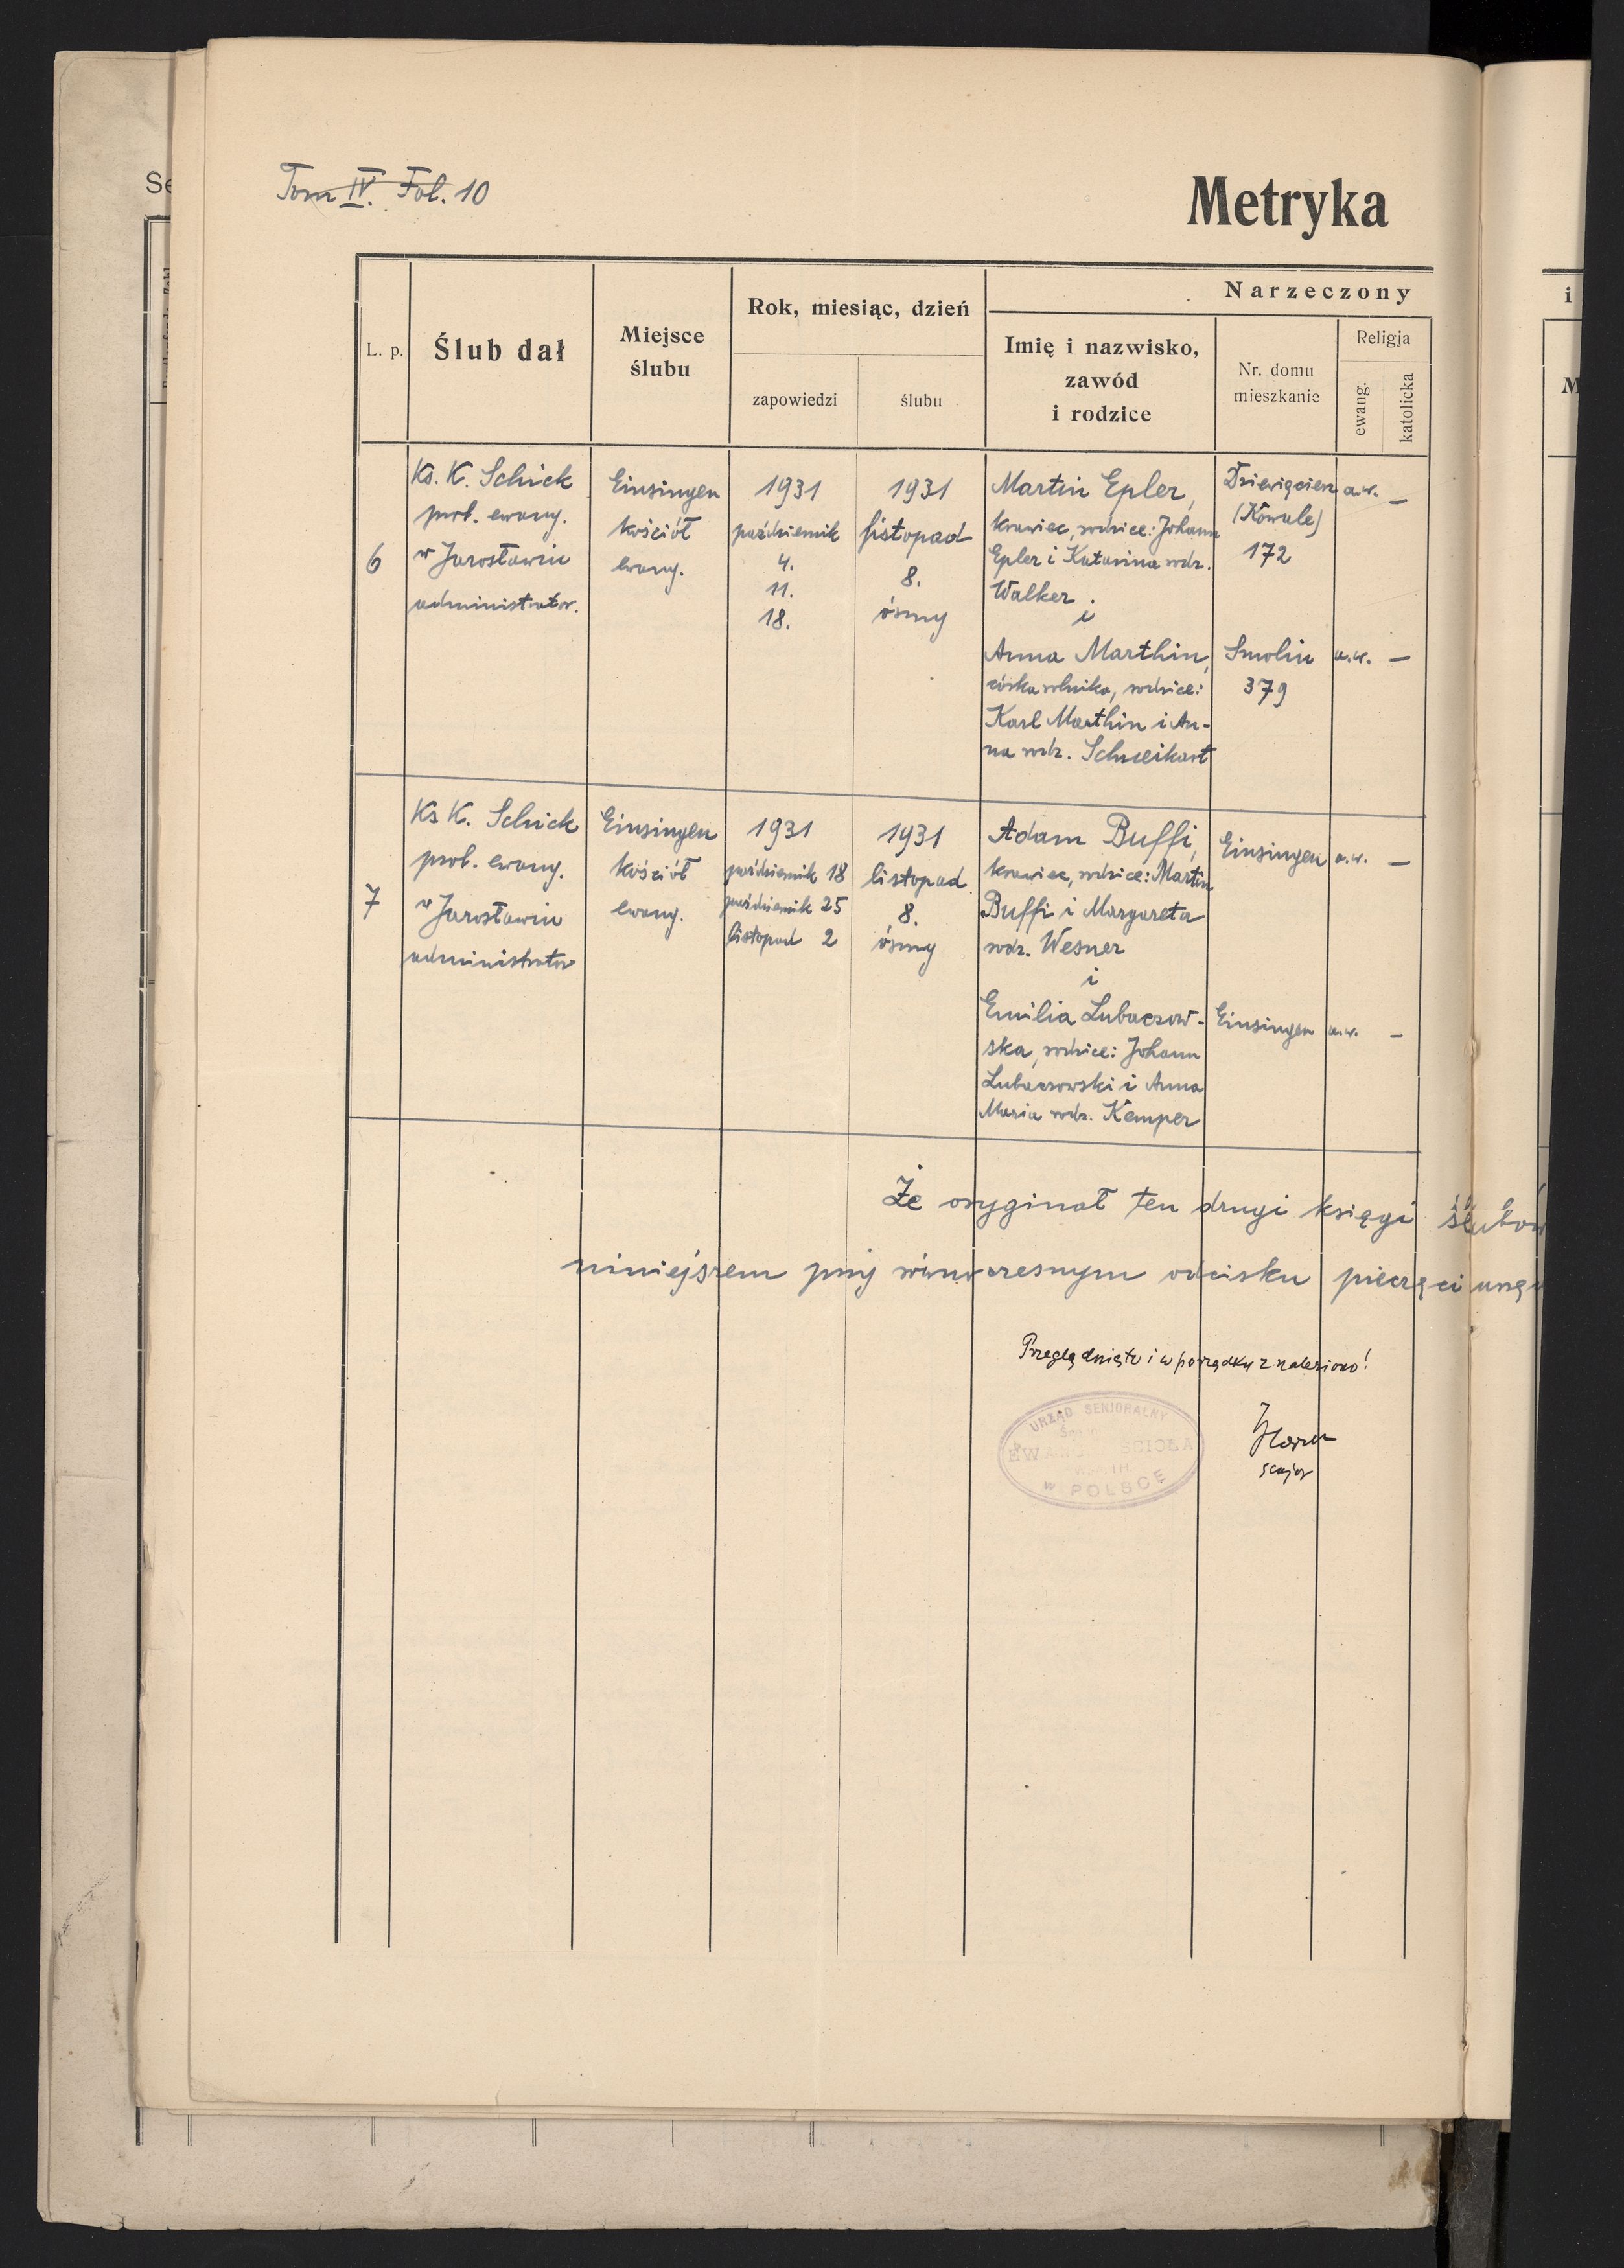 Tom IV. Fol. 10
Metryka
L. p.
Ślub dał
Miejsce
ślubu
Rok, miesiąc, dzień
zapowiedzi
ślubu
Narzeczony
Imię i nazwisko,
zawód
i rodzice
Nr. domu
mieszkanie
Religja
ewang.
katolicka
6
Ks. K. Schick
prob. ewang.
w Jarosławiu
administrator.
Einsingen
kościół
ewang.
1931
październik
4.
11.
18.
1931
listopad
8.
ósmy
Martin Epler,
krawiec, rodzice: Johann
Epler i Katarina rodz.
Walker
i
Anna Marthin,
córka rolnika, rodzice:
Karl Marthin i An-
na rodz. Schweikart
Dziewięcierz
(Kowale)
172
a.w. —
Smolin
379
a.w. —
7
Ks K. Schick
prob. ewang.
w Jarosławiu
administrator
Einsingen
kościół
ewang.
1931
październik 18
październik 25
listopad 2
1931
listopad
8.
ósmy
Adam Buffi,
krawiec, rodzice: Martin
Buffi i Margareta
rodz. Wesner
i
Emilia Lubaczow-
ska, rodzice: Johann
Lubaczowski i Anna
Maria rodz. Kemper
Einsingen
a.w. —
Einsingen
a.w. —
Że oryginał ten drugi księgi ślubów
niniejszem przy równoczesnym odcisku pieczęci
Przeglądnięto i w porządku znaleziono!
URZĄD SENJORALNY
W POLSCE
senjor